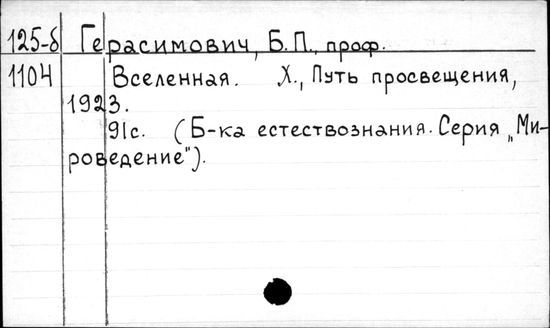 125-б Герасимович, Б.П., проф.
1104 Вселенная. Х., Путь просвещения,
1923.
91с. (Б-ка естествознания. Серия „Ми-
роведение").